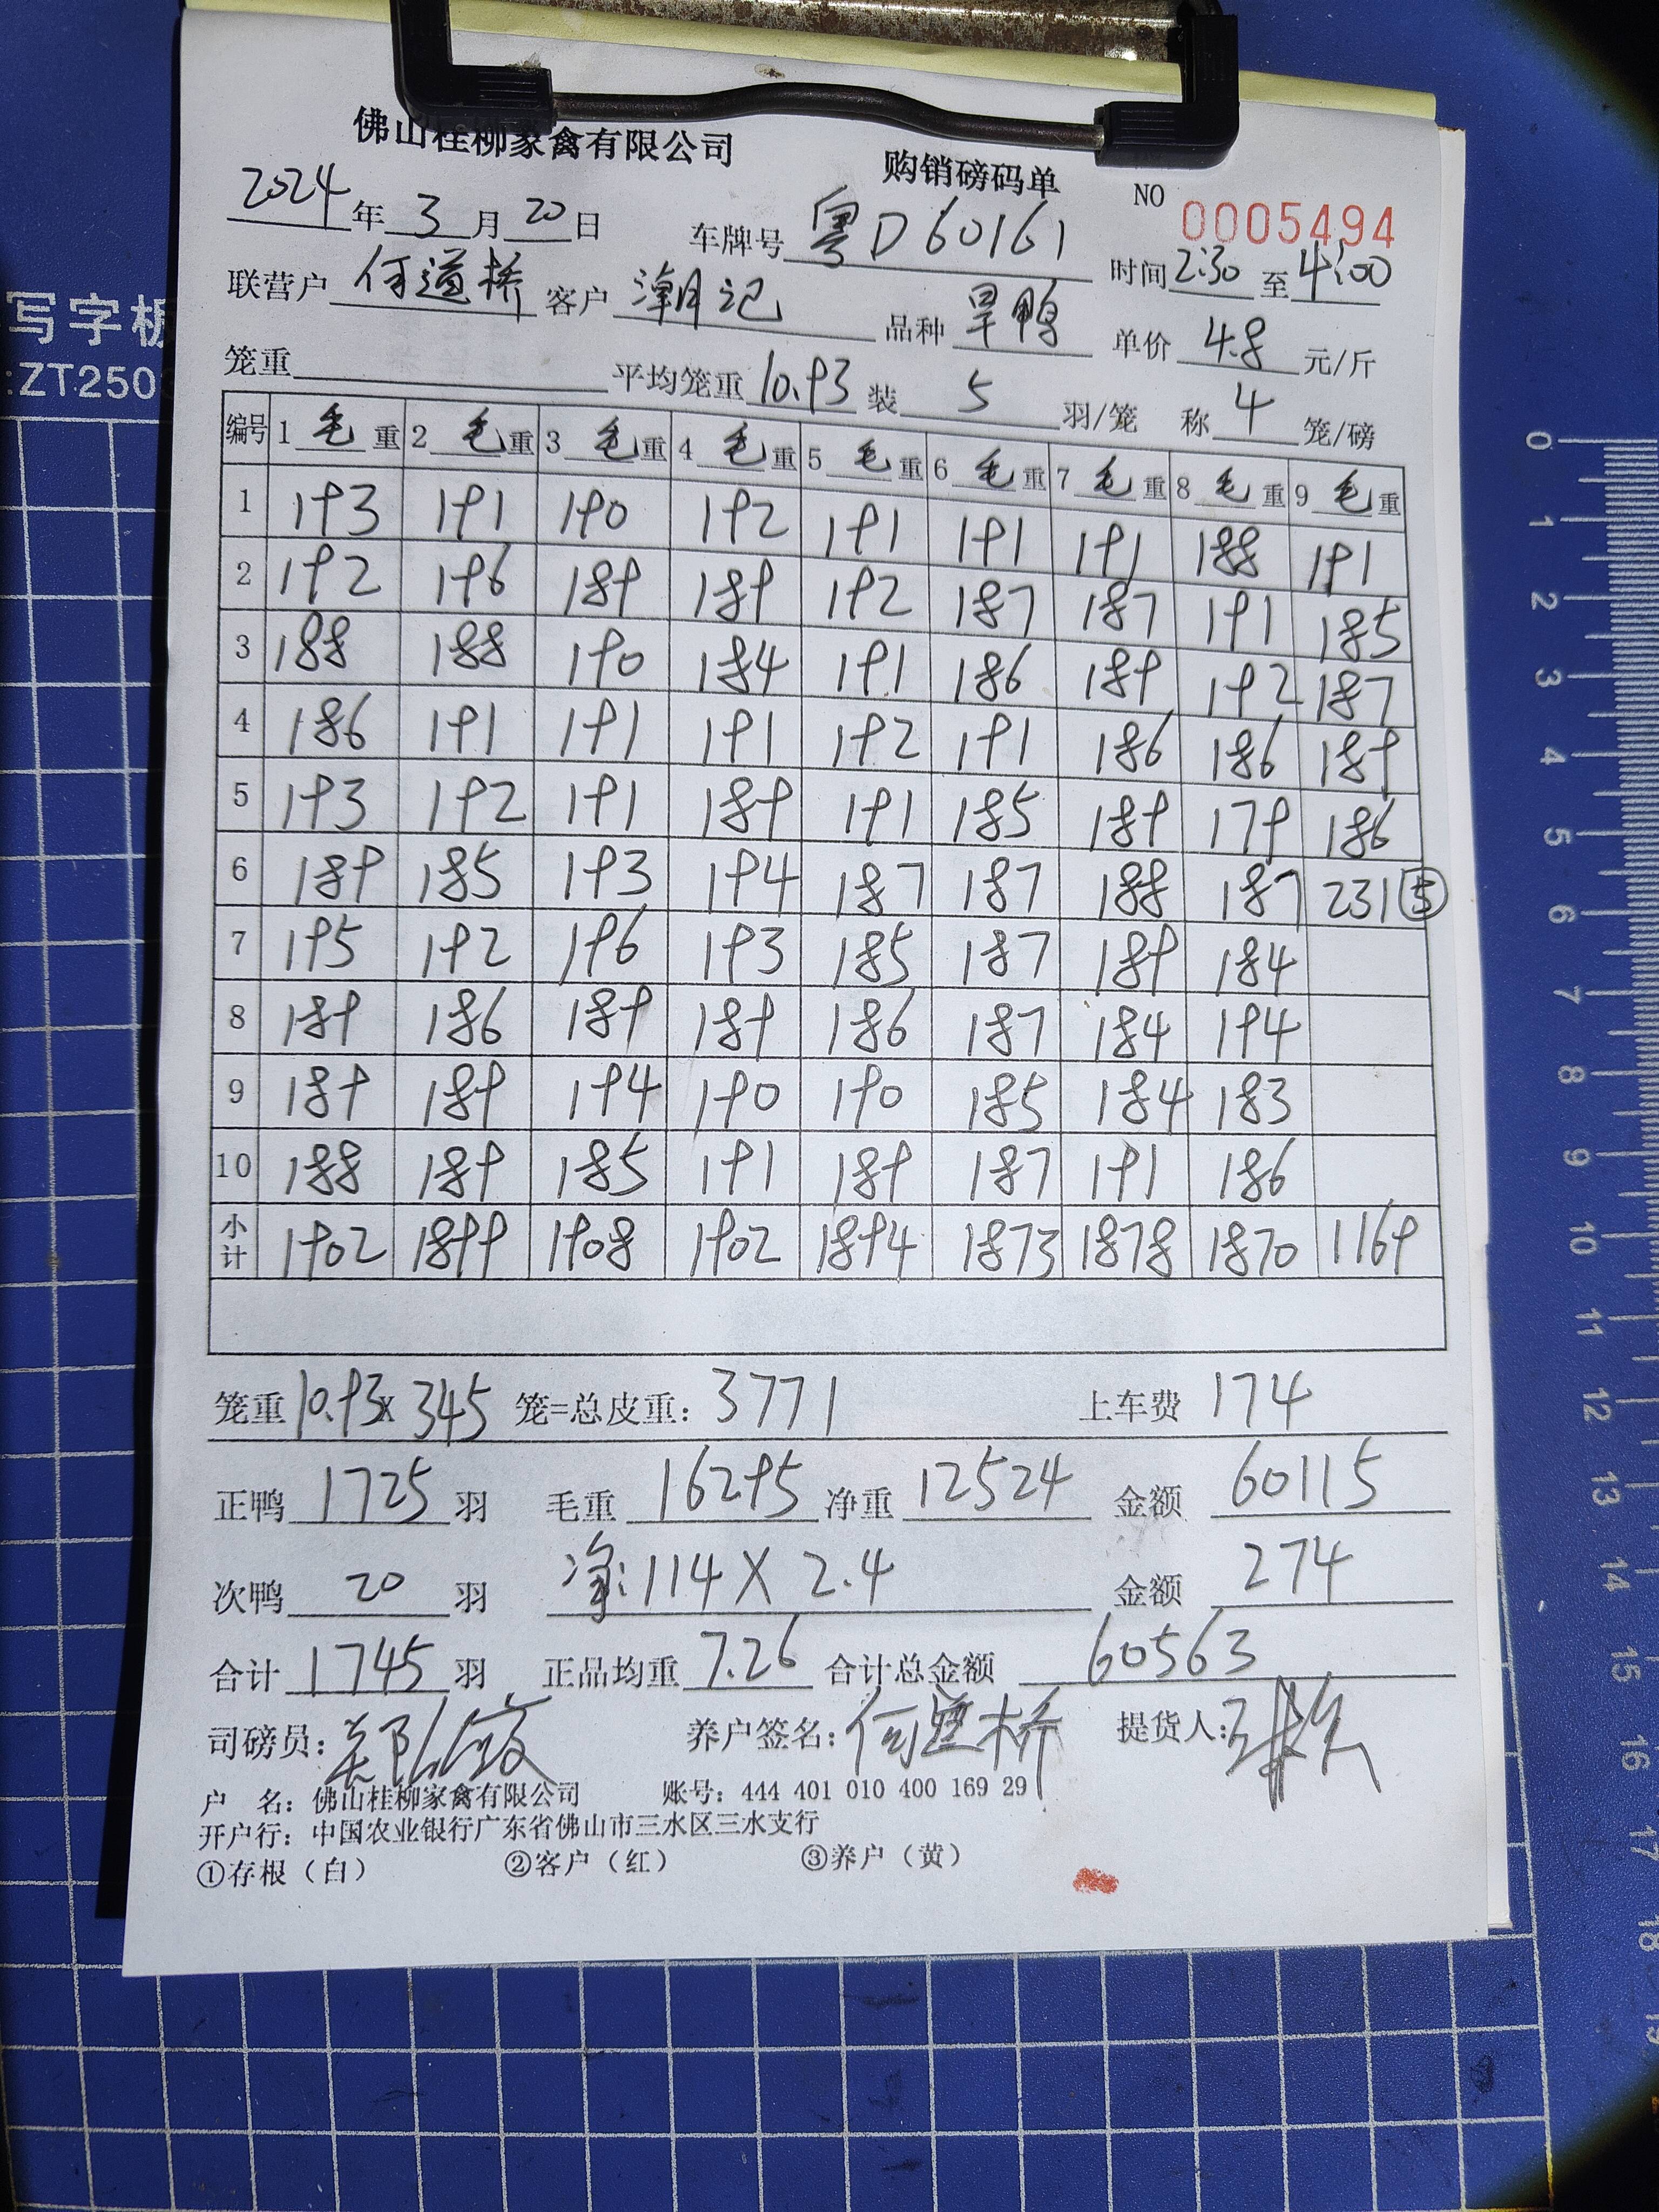 佛山桂柳家禽有限公司 购销磅码单 NO 0005494
2024年3月20日 车牌号 粤D60161 时间 2:30 至 4:00
联营户 何道桥 客户 潮记 品种 旱鸭 单价 4.8 元/斤
笼重 平均笼重 10.93 装 5 羽/笼 称 4 笼/磅
编号 1 毛重 2 毛重 3 毛重 4 毛重 5 毛重 6 毛重 7 毛重 8 毛重 9 毛重
1 193 191 190 192 191 191 191 188 191
2 192 196 189 189 192 187 187 191 185
3 188 188 190 184 191 186 189 192 187
4 186 191 191 191 192 191 186 186 189
5 193 192 191 189 191 185 189 179 186
6 189 185 193 194 187 187 188 187 231 ⑤
7 195 192 196 193 185 187 189 184
8 189 186 189 189 186 187 184 194
9 189 189 194 190 190 185 184 183
10 188 189 185 191 189 187 191 186
小计 1902 1899 1908 1902 1894 1873 1878 1870 1169
笼重 10.93 x 345 笼=总皮重: 3771 上车费 174
正鸭 1725 羽 毛重 16295 净重 12524 金额 60115
次鸭 20 羽 净: 114 X 2.4 金额 274
合计 1745 羽 正品均重 7.26 合计总金额 60563
司磅员: 养户签名: 何道桥 提货人:
户 名: 佛山桂柳家禽有限公司 账号: 444 401 010 400 169 29
开户行: 中国农业银行广东省佛山市三水区三水支行
①存根（白） ②客户（红） ③养户（黄）
写字板
:ZT250
0
1
2
3
4
5
6
7
8
9
10
11
12
13
14
15
16
17
18
19